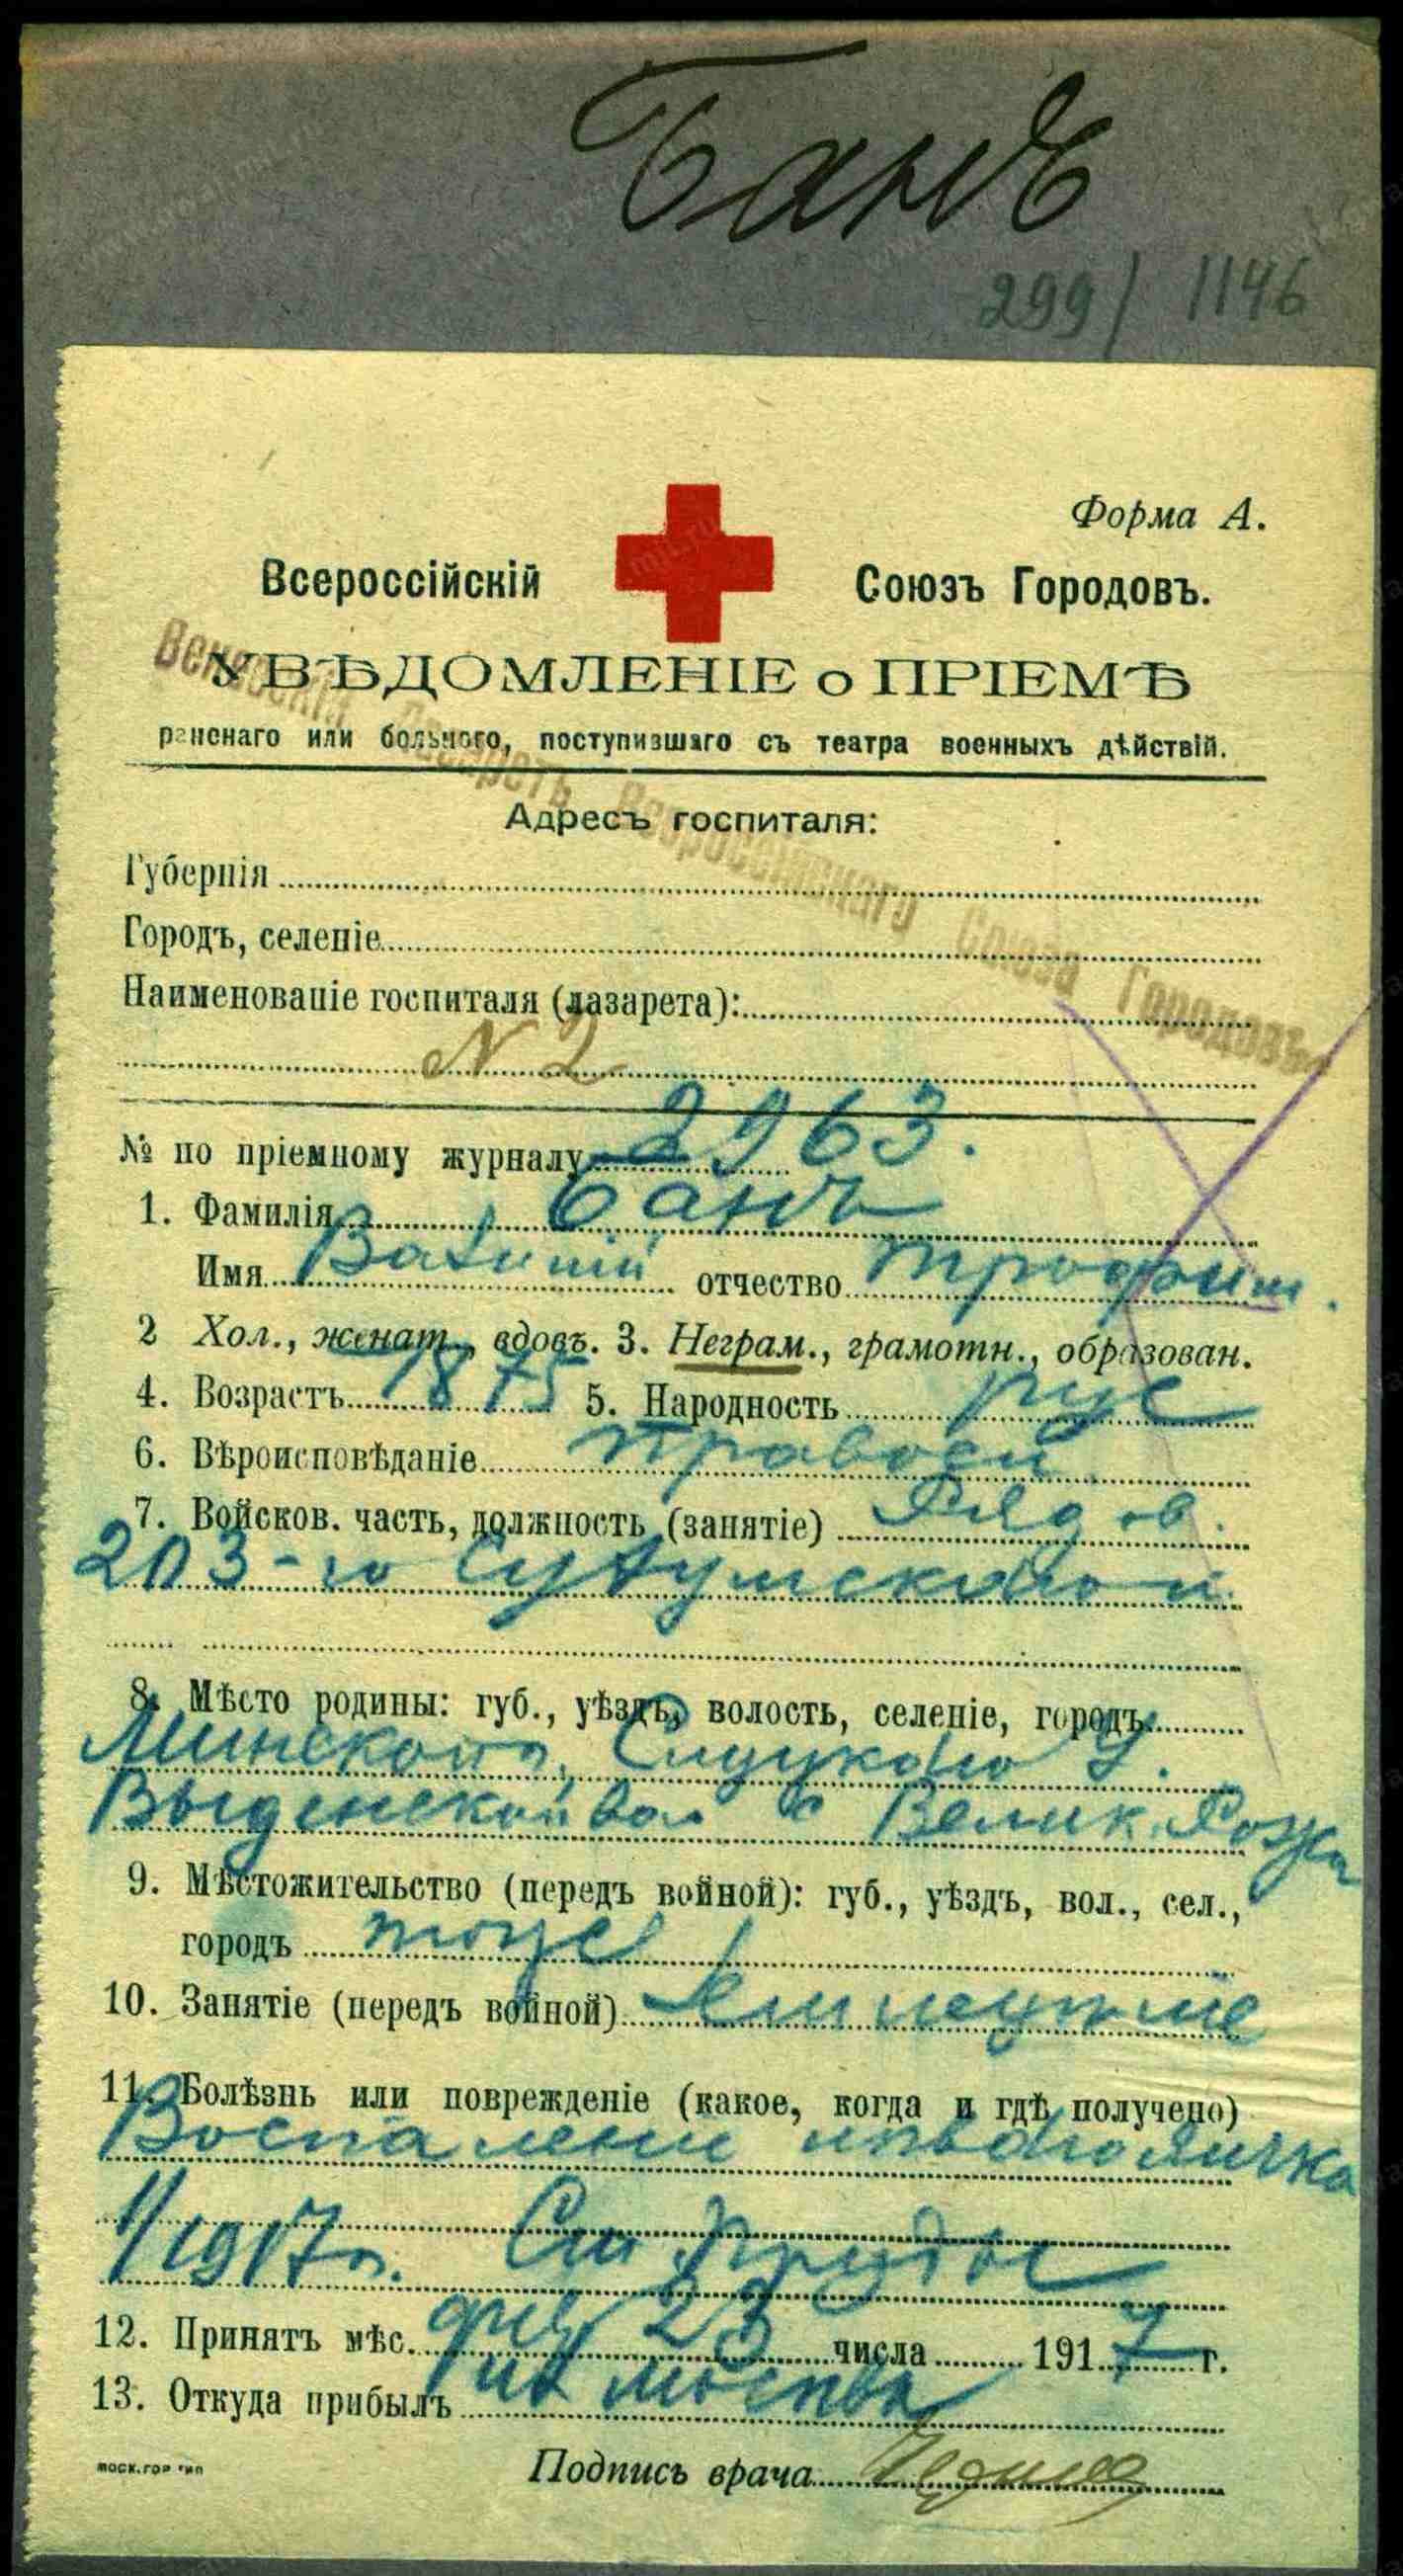 Банъ
299/1146
Форма А.
Всероссійскій Союзъ Городовъ.
УВѢДОМЛЕНІЕ о ПРІЕМѢ
раненаго или больного, поступившаго съ театра военныхъ дѣйствій.
Лазаретъ Всероссійскаго Союза Городовъ
Адресъ госпиталя:
Губернія
Городъ, селеніе
Наименованіе госпиталя (лазарета):
N 2
№ по пріемному журналу 2963.
1. Фамилія Банъ
Имя отчество Трофим.
2 Хол., женат., вдовъ. 3. Неграм., грамотн., образован.
4. Возрастъ 1875 5. Народность рус
6. Вѣроисповѣданіе правосл
7. Войсков. часть, должность (занятіе) Рядов.
203-го Сухумскаго п.
8. Мѣсто родины: губ., уѣздъ, волость, селеніе, городъ
Минской г., Слуцкаго у.
вол с Велик. Рожа
9. Мѣстожительство (передъ войной): губ., уѣздъ, вол., сел.,
городъ тоже
10. Занятіе (передъ войной)
11. Болѣзнь или поврежденіе (какое, когда и гдѣ получено)
Воспалени лѣваго яичка
1/1917г. Ст Пруды
12. Принятъ мѣс. фев 23 числа 1917 г.
13. Откуда прибылъ из Москвы
Подпись врача
МОСК.ГОР ТИП